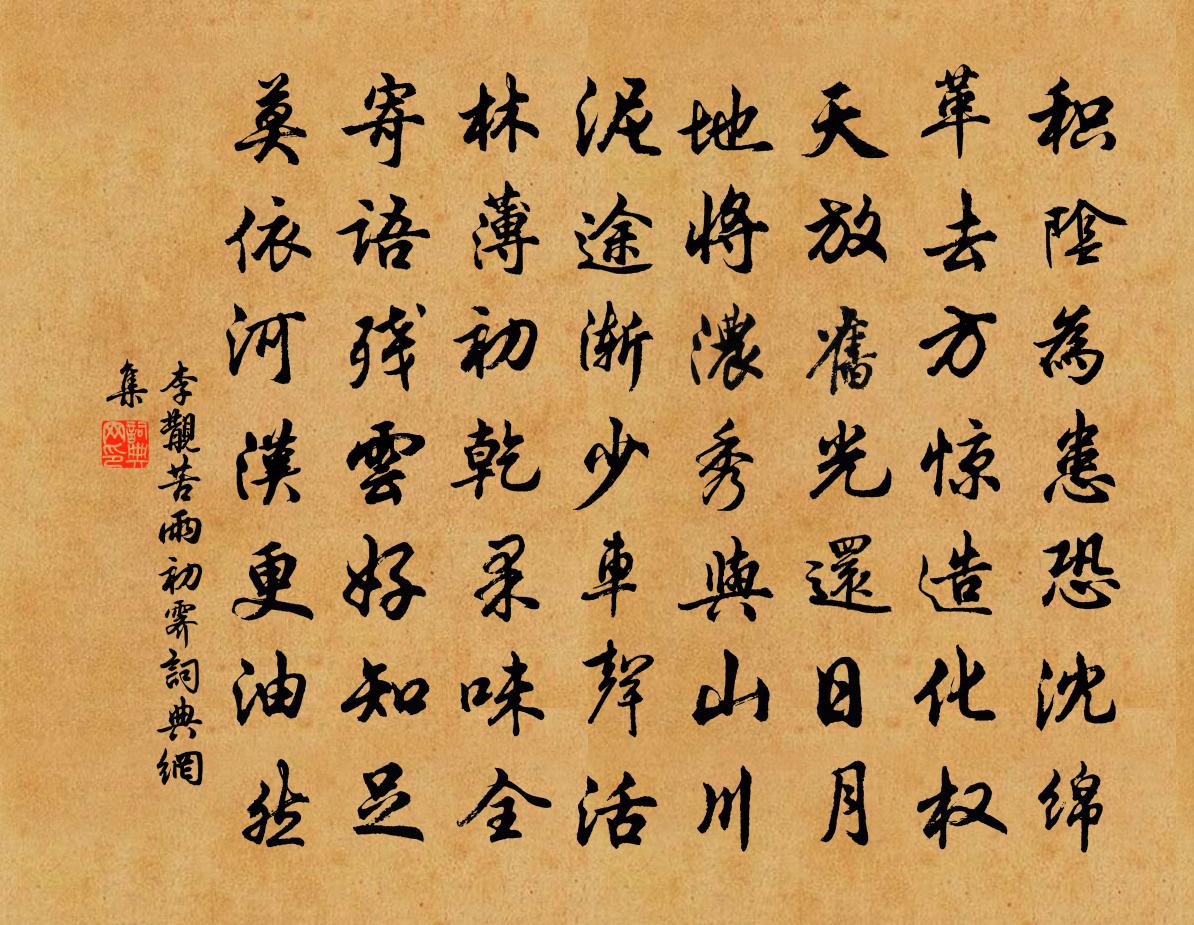 积陰為患恐沈绵
革去方惊造化权
天放舊光還日月
地將濃秀與山川
泥途漸少車聲活
林薄初乾果味全
寄語殘雲好知足
莫依河漢更油然
李觏苦雨初霽詞典網
集
詞典
网印